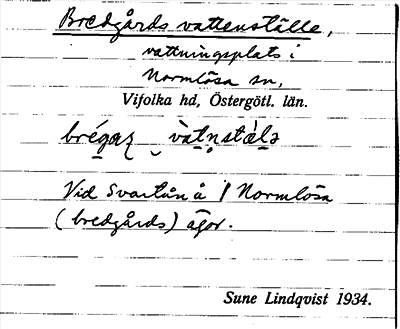 Bredgårds vattenställe,
vattningsplats i
Normlösa sn,
Vifolka hd, Östergötl. län.
Vid Svartån å Normlösa
(bredgårds) ägor.
Sune Lindqvist 1934.